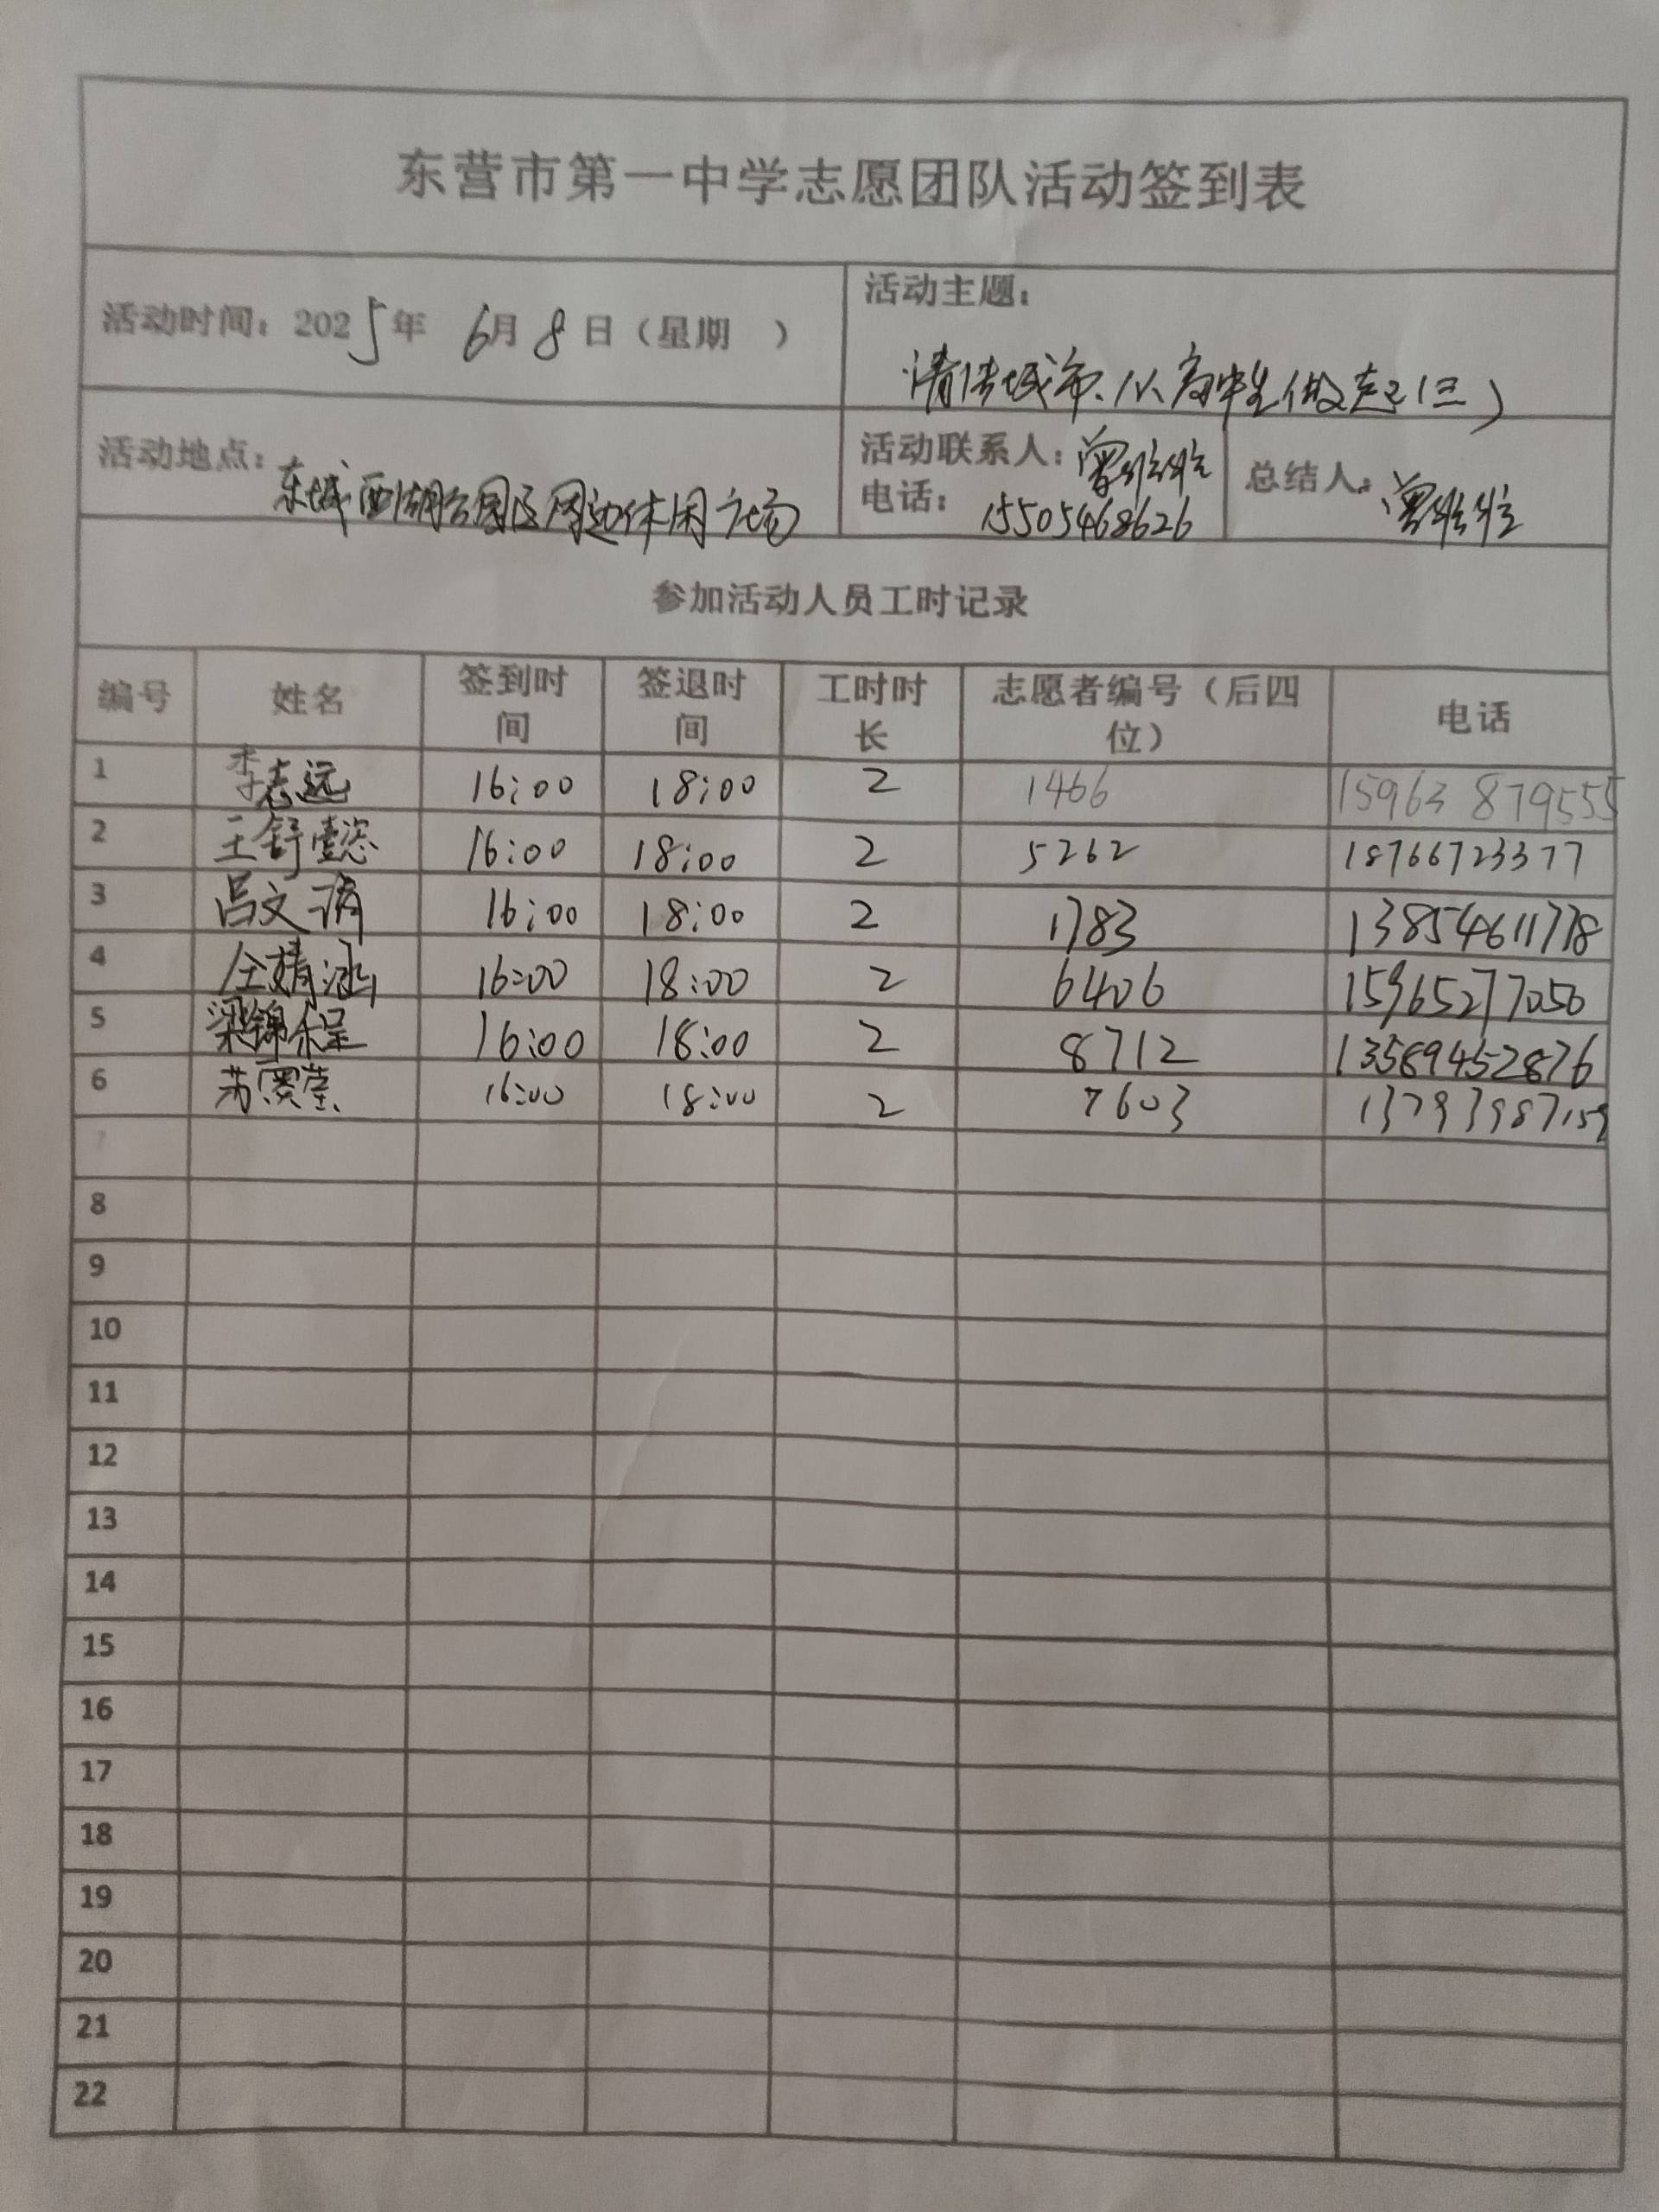 东营市第一中学志愿团队活动签到表
活动时间：2025年 6月8日（星期 ）
活动主题：
清洁城市、从高中生做起(三)
活动地点：东城西湖公园及周边休闲广场
活动联系人：曾维维
电话：15505468626
总结人：曾维维
参加活动人员工时记录
编号 姓名 签到时间 签退时间 工时时长 志愿者编号（后四位） 电话
1 李志远 16:00 18:00 2 1466 15963879555
2 王舒懿 16:00 18:00 2 5262 18766723377
3 吕文 16:00 18:00 2 1783 13854611778
4 仝婧涵 16:00 18:00 2 6406 15965277050
5 梁锦程 16:00 18:00 2 8712 13589452876
6 苏 16:00 18:00 2 7603 13793987159
7
8
9
10
11
12
13
14
15
16
17
18
19
20
21
22